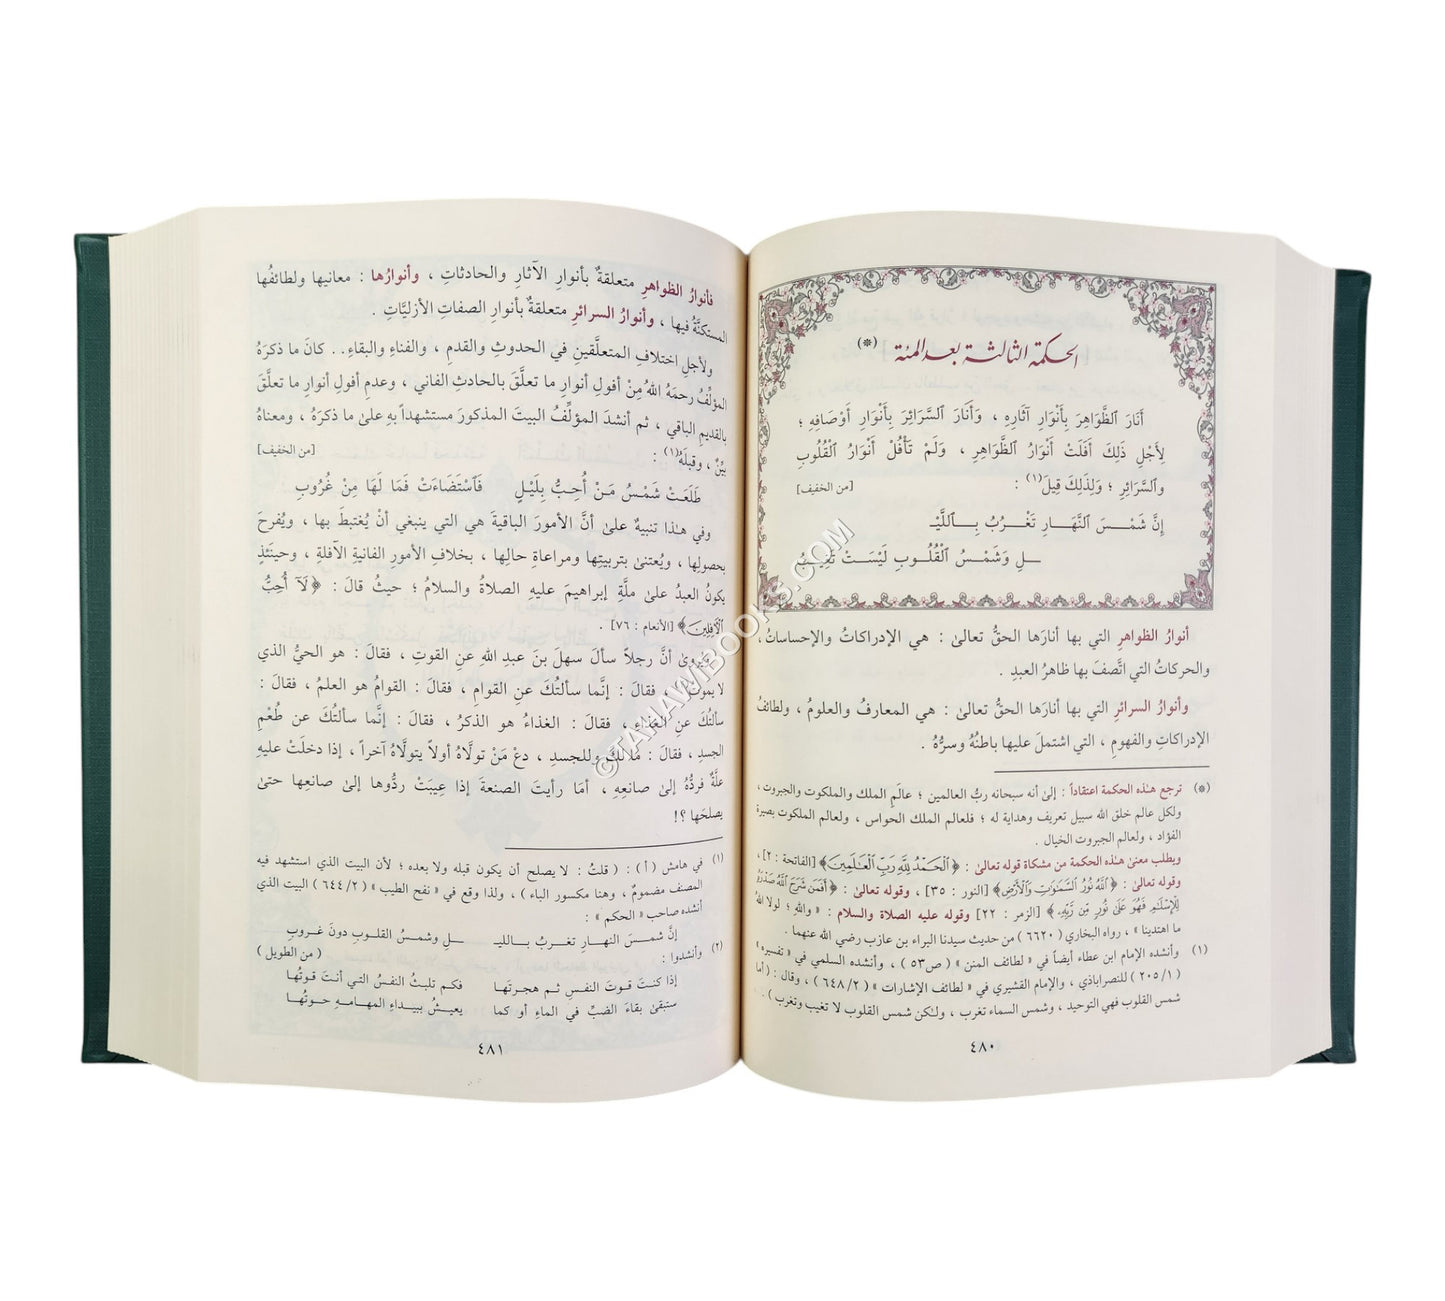 الحكمة الثالثة بعد المئة (*)
أَنَارَ ٱلظَّوَاهِرَ بِأَنْوَارِ آثَارِهِ ، وَأَنَارَ ٱلسَّرَائِرَ بِأَنْوَارِ أَوْصَافِهِ ؛
لِأَجْلِ ذَلِكَ أَفَلَتْ أَنْوَارُ ٱلظَّوَاهِرِ ، وَلَمْ تَأْفُلْ أَنْوَارُ ٱلْقُلُوبِ
وٱلسَّرَائِرِ ؛ وَلِذَلِكَ قِيلَ(١) : [من الخفيف]
إِنَّ شَمْسَ ٱلنَّهَارِ تَغْرُبُ بِٱللَّيْـ
ـلِ وَشَمْسُ ٱلْقُلُوبِ لَيْسَتْ تَغِيبُ
أنوارُ الظواهرِ التي بها أنارَها الحقُّ تعالىٰ : هي الإدراكاتُ والإحساساتُ ،
والحركاتُ التي اتَّصفَ بها ظاهرُ العبدِ .
وأنوارُ السرائرِ التي بها أنارَها الحقُّ تعالىٰ : هي المعارفُ والعلومُ ، ولطائفُ
الإدراكاتِ والفهومِ ، التي اشتملَ عليها باطنُهُ وسرُّهُ .
(*) ترجع هـٰذه الحكمة اعتقاداً : إلىٰ أنه سبحانه ربُّ العالمين ؛ عالَمِ الملك والملكوت والجبروت ،
ولكل عالم خلق الله سبيل تعريف وهداية له ؛ فلعالم الملك الحواس ، ولعالم الملكوت بصيرة
الفؤاد ، ولعالم الجبروت الخيال .
ويطلب معنىٰ هـٰذه الحكمة من مشكاة قوله تعالىٰ : ﴿ٱلْحَمْدُ لِلَّهِ رَبِّ ٱلْعَـٰلَمِينَ﴾ [الفاتحة : ٢] ،
وقوله تعالىٰ : ﴿ٱللَّهُ نُورُ ٱلسَّمَـٰوَٰتِ وَٱلْأَرْضِ﴾ [النور : ٣٥] ، وقوله تعالىٰ : ﴿أَفَمَن شَرَحَ ٱللَّهُ صَدْرَهُ
لِلْإِسْلَـٰمِ فَهُوَ عَلَىٰ نُورٍ مِّن رَّبِّهِ﴾ [الزمر : ٢٢] وقوله عليه الصلاة والسلام : « واللهِ ؛ لولا اللهُ
ما اهتدينا » ، رواه البخاري ( ٦٦٢٠ ) من حديث سيدنا البراء بن عازب رضي الله عنهما .
(١) وأنشده الإمام ابن عطاء أيضاً في « لطائف المنن » ( ص٥٣ ) ، وأنشده السلمي في « تفسيره »
( ٢٠٥/١ ) للنصراباذي ، والإمام القشيري في « لطائف الإشارات » ( ٦٤٨/٢ ) ، وقال : ( أما
شمس القلوب فهي التوحيد ، وشمس السماء تغرب ، ولـٰكن شمس القلوب لا تغيب وتغرب ) .
٤٨٠
فأنوارُ الظواهرِ متعلقةٌ بأنوارِ الآثارِ والحادثاتِ ، وأنوارُها : معانيها ولطائفُها
المستكنَّةُ فيها ، وأنوارُ السرائرِ متعلقةٌ بأنوارِ الصفاتِ الأزليَّاتِ .
ولأجلِ اختلافِ المتعلَّقينِ في الحدوثِ والقدمِ ، والفناءِ والبقاءِ.. كانَ ما ذكرَهُ
المؤلِّفُ رحمَهُ اللهُ مِنْ أفولِ أنوارِ ما تعلَّقَ بالحادثِ الفاني ، وعدمِ أفولِ أنوارِ ما تعلَّقَ
بالقديمِ الباقي ، ثم أنشدَ المؤلِّفُ البيتَ المذكورَ مستشهداً بهِ علىٰ ما ذكرَهُ ، ومعناهُ
بيِّنٌ ، وقبلَهُ(١) : [من الخفيف]
طَلَعَتْ شَمْسُ مَنْ أُحِبُّ بِلَيْلٍ فَٱسْتَضَاءَتْ فَمَا لَهَا مِنْ غُرُوبِ
وفي هـٰذا تنبيهٌ علىٰ أنَّ الأمورَ الباقيةَ هي التي ينبغي أنْ يُغتبطَ بها ، ويُفرحَ
بحصولِها ، ويُعتنىٰ بتربيتِها ومراعاةِ حالِها ، بخلافِ الأمورِ الفانيةِ الآفلةِ ، وحينَئذٍ
يكونُ العبدُ علىٰ ملَّةِ إبراهيمَ عليهِ الصلاةُ والسلامُ ؛ حيثُ قالَ : ﴿ لَآ أُحِبُّ
ٱلْآفِلِينَ﴾ [الأنعام : ٧٦] .
ويُروىٰ أنَّ رجلاً سألَ سهلَ بنَ عبدِ اللهِ عنِ القوتِ ، فقالَ : هو الحيُّ الذي
لا يموتُ ، فقالَ : إنَّما سألتُكَ عنِ القوامِ ، فقالَ : القوامُ هو العلمُ ، فقالَ :
سألتُكَ عنِ الغذاءِ ، فقالَ : الغذاءُ هو الذكرُ ، فقالَ : إنَّما سألتُكَ عن طُعْمِ
الجسدِ ، فقالَ : مَا لَكَ وللجسدِ ، دعْ مَنْ تولَّاهُ أولاً يتولَّاهُ آخراً ، إذا دخلَتْ عليهِ
علَّةٌ فردُّهُ إلىٰ صانعِهِ ، أمَا رأيتَ الصنعةَ إذا عِيبَتْ ردُّوها إلىٰ صانعِها حتىٰ
يصلحَها ؟!
(١) في هامش ( أ ) : ( قلتُ : لا يصلح أن يكون قبله ولا بعده ؛ لأن البيت الذي استشهد فيه
المصنف مضمومٌ ، وهنا مكسور الباء ) ، ولذا وقع في « نفح الطيب » ( ٦٤٤/٢ ) البيت الذي
أنشده صاحب « الحكم » :
إنَّ شمـسَ النهـارِ تغـربُ بـالليـ ـلِ وشمـسُ القلـوبِ دونَ غـروبِ
(٢) وأنشدوا : ( من الطويل )
إذا كنـتَ قـوتَ النفـسِ ثـم هجـرتَهـا فكـم تلبـثُ النفـسُ التـي أنـتَ قـوتُهـا
ستبقىٰ بقاءَ الضبِّ في الماءِ أو كما يعيـشُ ببيـداءِ المهـامـهِ حـوتُهـا
٤٨١
© TANAWIBOOKS.COM